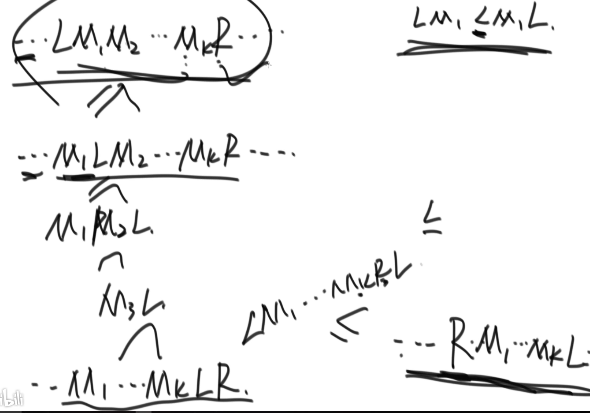 ··· LM₁M₂ ··· MₖR ···
LM₁ ≤ M₁L.
··· M₁LM₂ ··· MₖR ····
M₁M₂L.
L
M₃L
LM₁ ··· MₖRL
··· M₁ ··· MₖLR.
≤
··· R·M₁ ··· MₖL·
bili